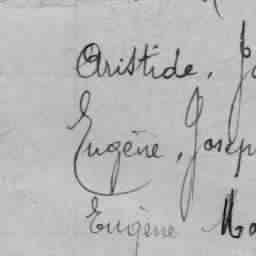 Aristide, Jo
Eugène, Josep
Eugène Ma